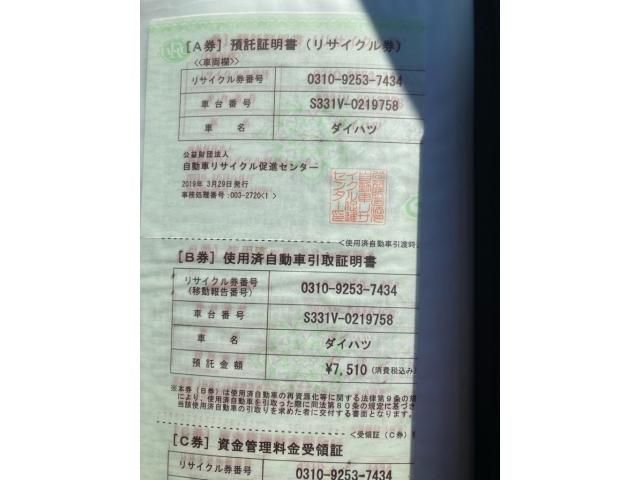 [A券] 預託証明書(リサイクル券)
<<車両欄>>
リサイクル券番号 0310-9253-7434
車台番号 S331V-0219758
車名 ダイハツ
公益財団法人
自動車リサイクル促進センター
2019年 3月29日発行
事務処理番号:003-2720<1>
<使用済自動車引渡時
[B券] 使用済自動車引取証明書
リサイクル券番号
(移動報告番号) 0310-9253-7434
車台番号 S331V-0219758
車名 ダイハツ
預託金額 ¥7,510 (消費税込み
※本券(B券)は使用済自動車の再資源化等に関する法律第9条の規
により、使用済自動車を引取った際に同法第80条の規定に基づき
当該使用済自動車の引取りを求めた者に交付する書面となります。
<受領証(C券)
[C券] 資金管理料金受領証
リサイクル券番号 0310-9253-7434